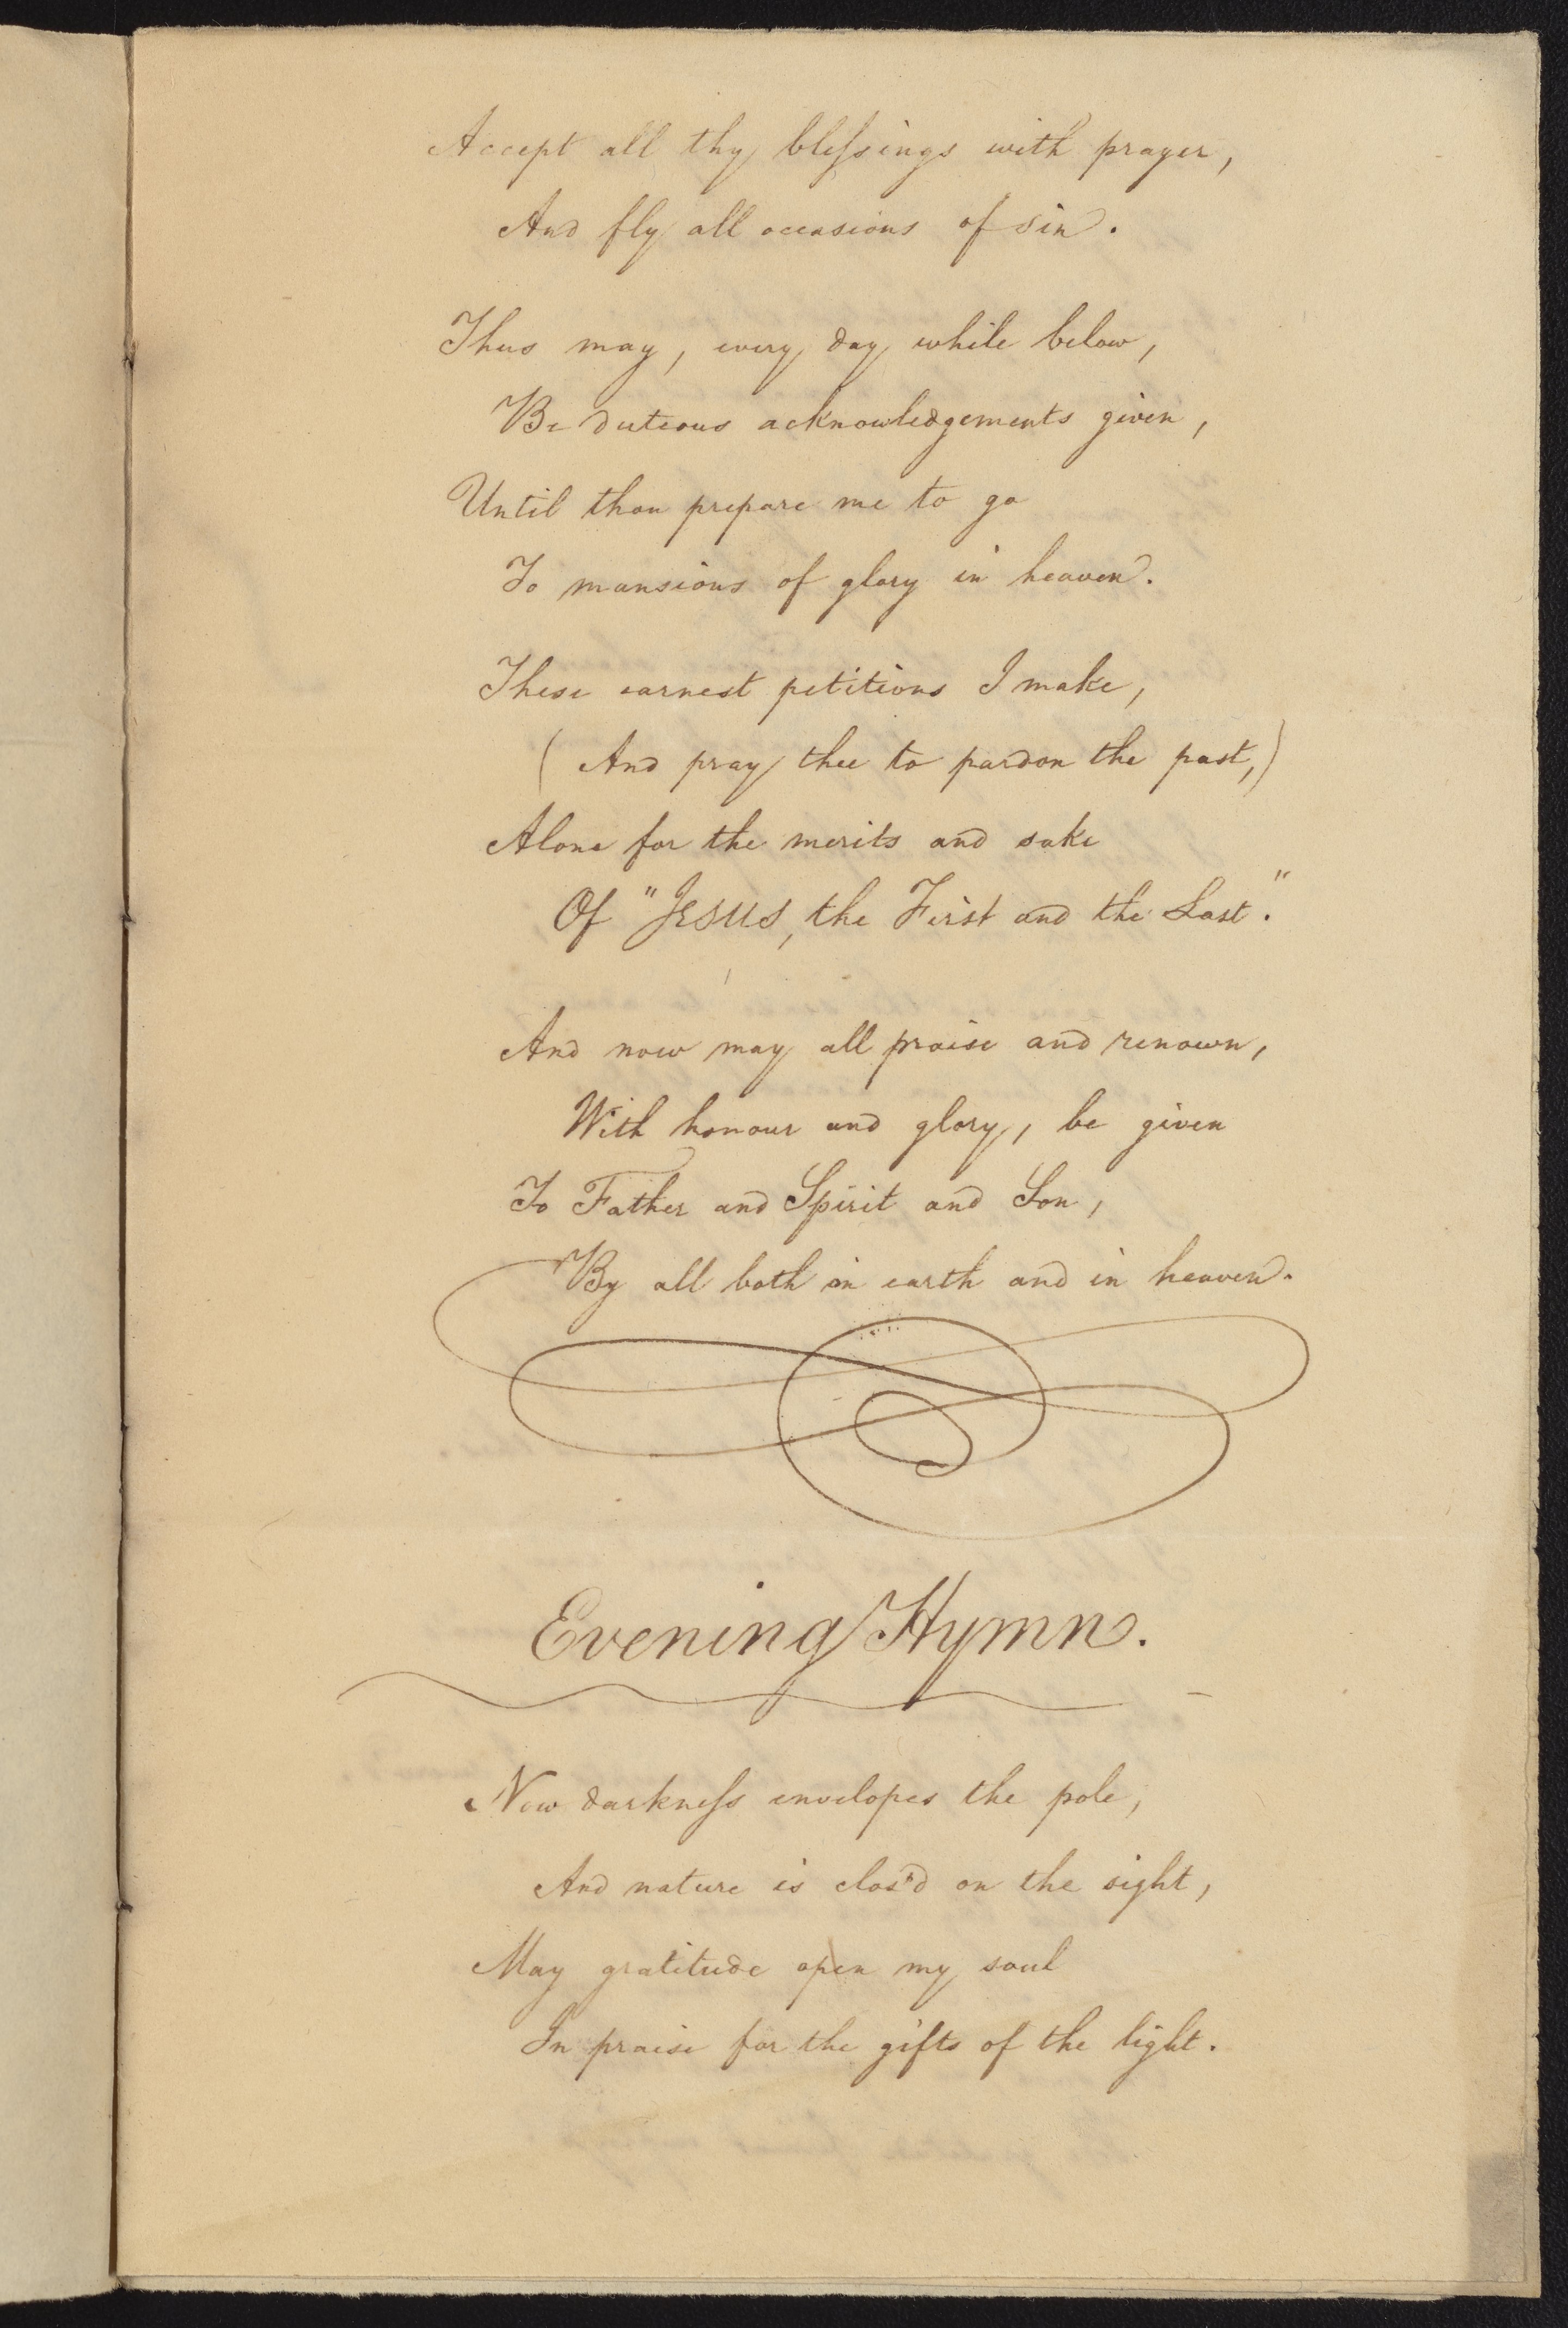 Accept all thy bleſsings with prayer,
And fly all occasions of sin.
Thus may, every day while below,
Be duteous acknowledgements given,
Until thou prepare me to go
To mansions of glory in heaven.
These earnest petitions I make,
(And pray thee to pardon the past,)
Alone for the merits and sake
Of "JESUS, the First and the Last."
And now may all praise and renown,
With honour and glory, be given
To Father and Spirit and Son,
By all both in earth and in heaven.
Evening Hymn.
Now darkneſs envelopes the pole,
And nature is clos'd on the sight,
May gratitude open my soul
In praise for the gifts of the light.